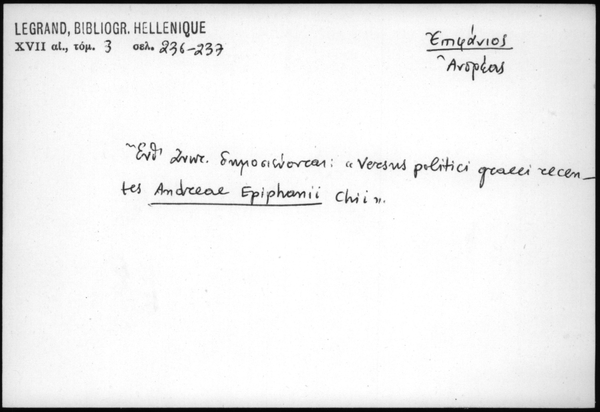 LEGRAND, BIBLIOGR. HELLENIQUE
XVII αἰ., τόμ. 3 σελ. 236-237
Ἐπιφάνιος
Ἀνδρέας
Ἔνθ' ἀνωτ. δημοσιεύονται: «Versus politici graeci recen-
tes Andreae Epiphanii Chii».